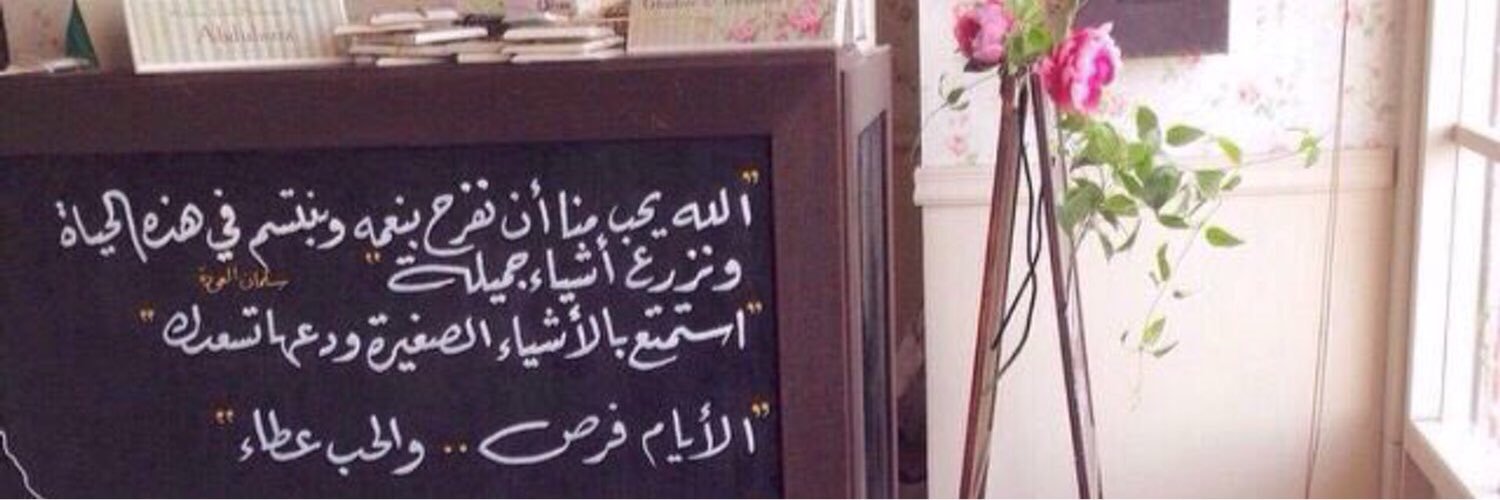 Abdulaziz
"الله يحب منا أن نفرح بنعمه ونبتسم في هذه الحياة
ونزرع أشياء جميلة"
سلمان العودة
"استمتع بالأشياء الصغيرة ودعها تسعدك"
"الأيام فرص .. والحب عطاء"